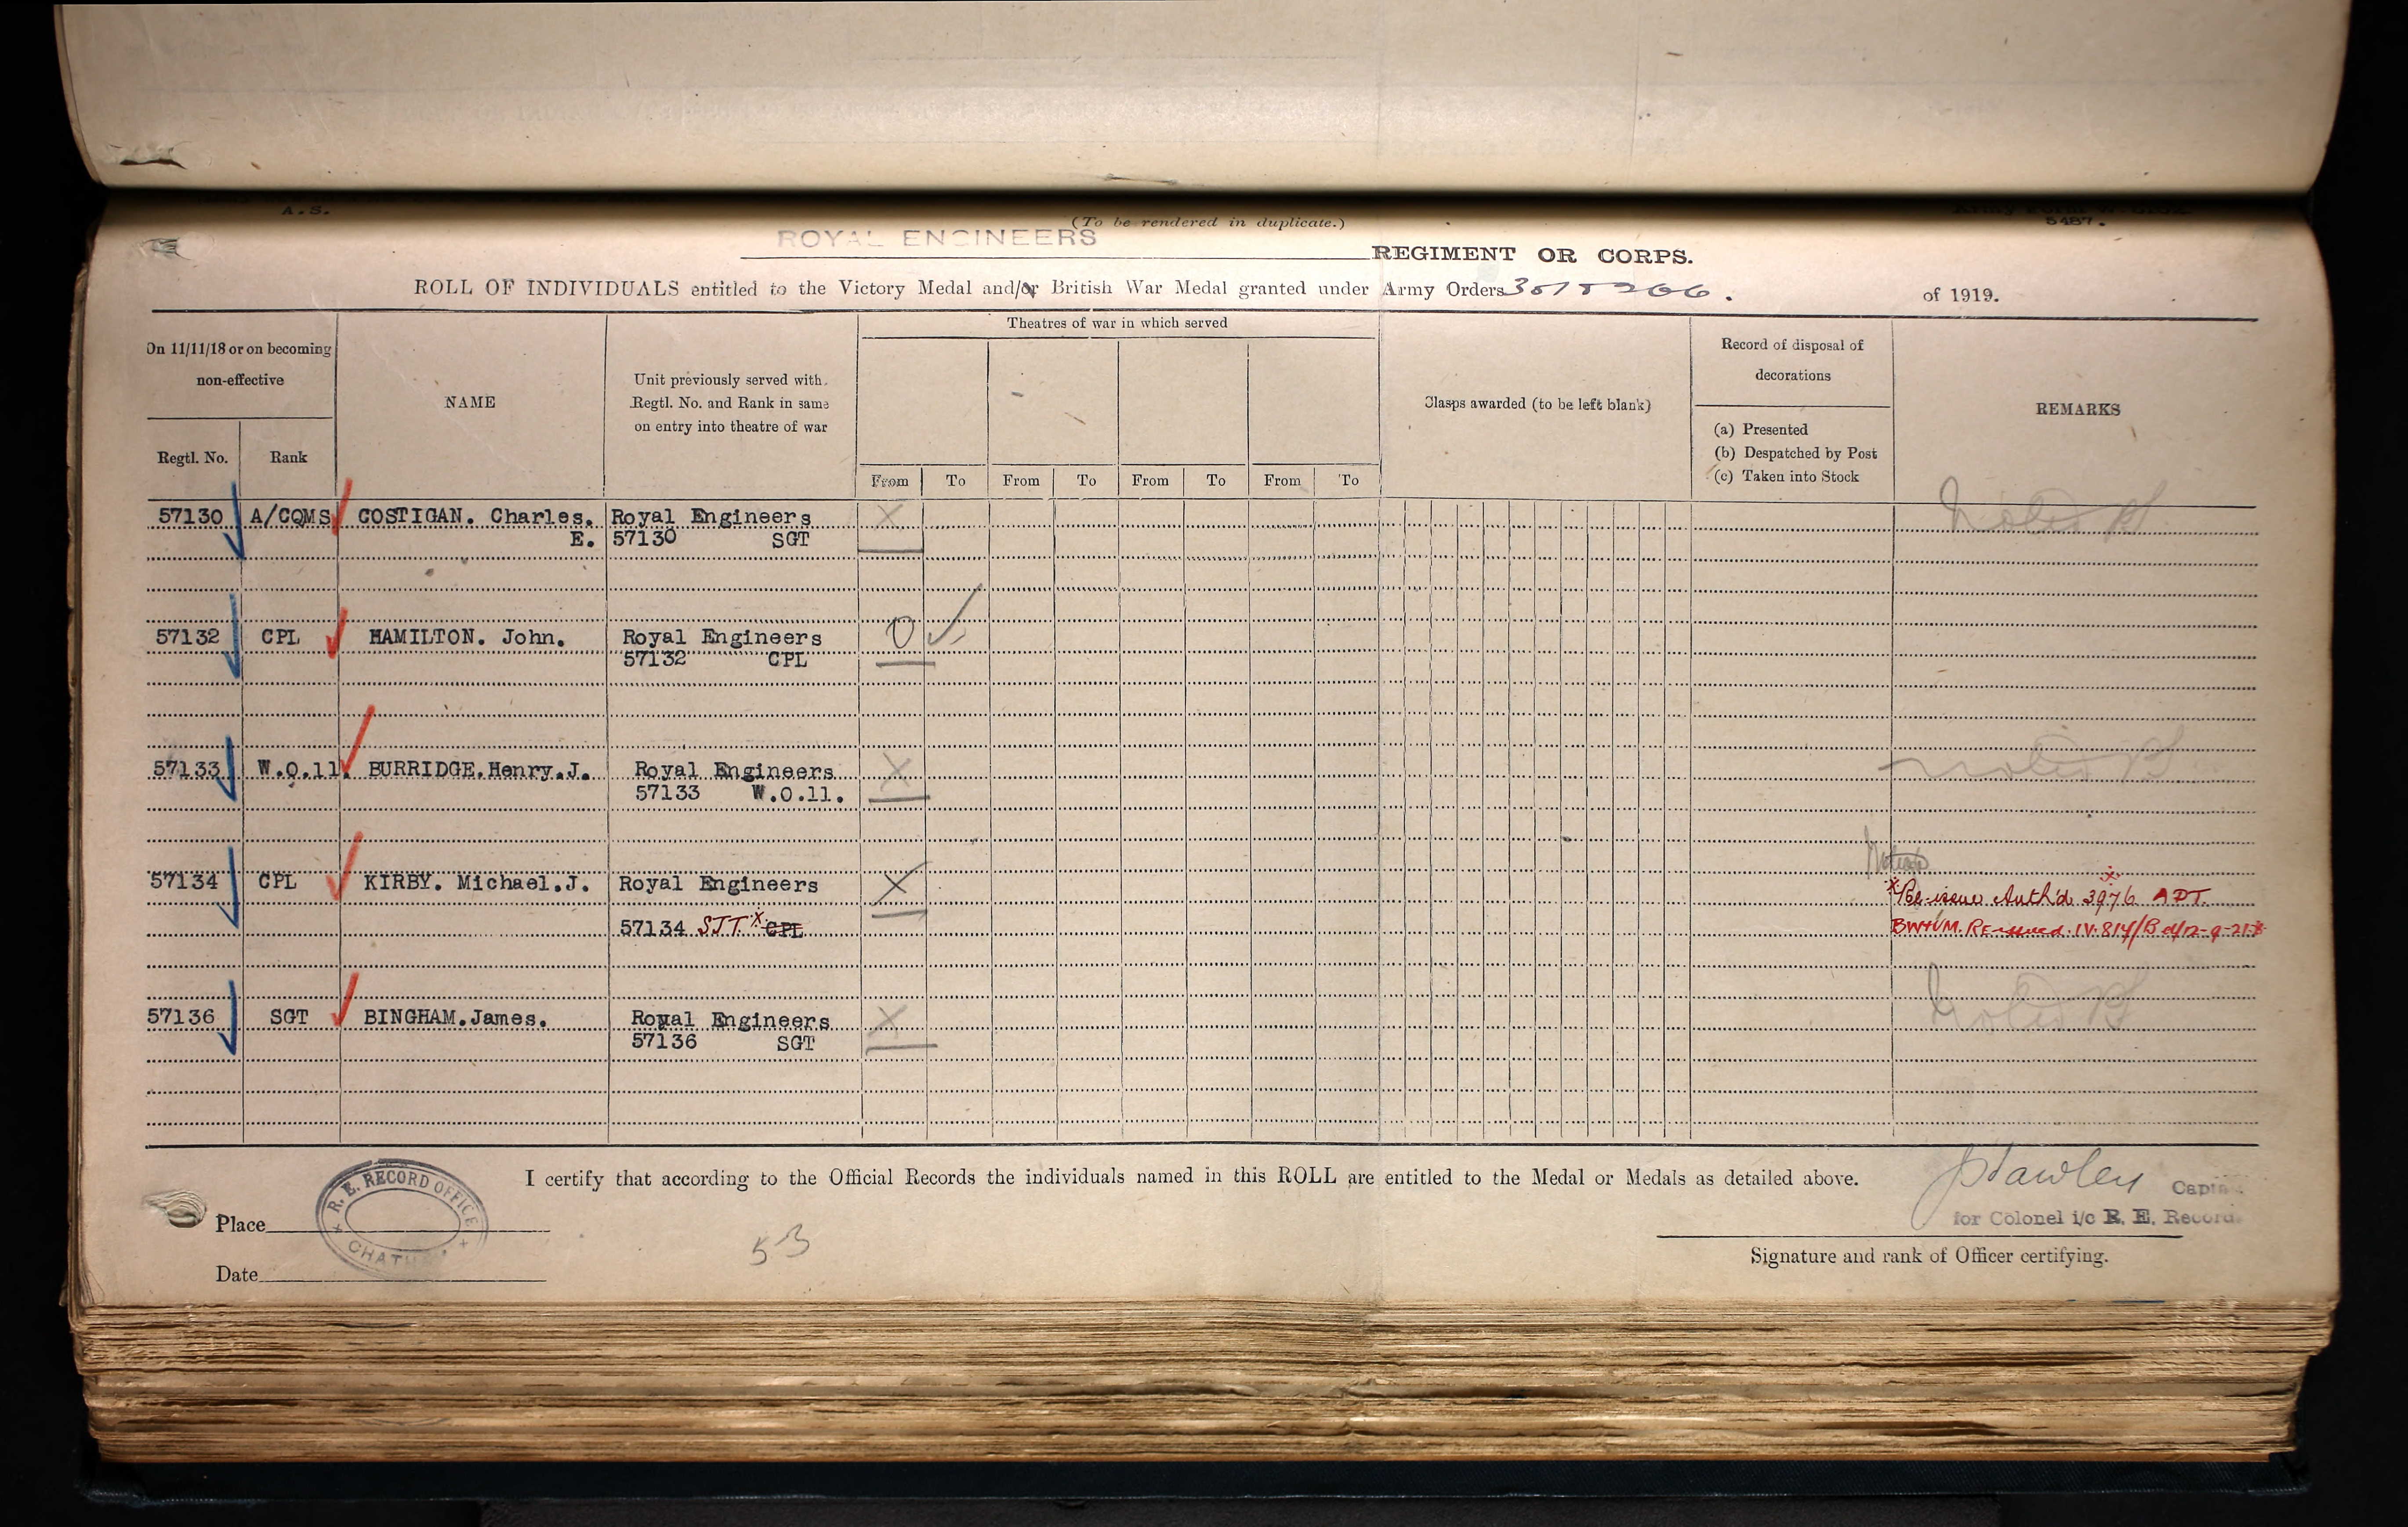 A.S.
(To be rendered in duplicate.)
5487.
ROYAL ENGINEERS
REGIMENT OR CORPS.
ROLL OF INDIVIDUALS entitled to the Victory Medal and/or British War Medal granted under Army Orders 301 & 266. of 1919.
On 11/11/18 or on becoming
non-effective
Regtl. No.
Rank
NAME
Unit previously served with.
Regtl. No. and Rank in same
on entry into theatre of war
Theatres of war in which served
From To From To From To From To
Clasps awarded (to be left blank)
Record of disposal of
decorations
(a) Presented
(b) Despatched by Post
(c) Taken into Stock
REMARKS
57130 A/CQMS COSTIGAN. Charles. Royal Engineers X
E. 57130 SGT
57132 CPL HAMILTON. John. Royal Engineers O ✓
57132 CPL
57133 W.O.11. BURRIDGE.Henry.J. Royal Engineers X
57133 W.O.11.
57134 CPL KIRBY. Michael.J. Royal Engineers X
*Re-issue Auth'd 3976 ADT.
57134 SJT.x CPL
BW+VM. Re-issued. IV. 814/B d/12-9-21
57136 SGT BINGHAM.James. Royal Engineers X
57136 SGT
I certify that according to the Official Records the individuals named in this ROLL are entitled to the Medal or Medals as detailed above.
Captain
for Colonel i/c R. E. Records
Signature and rank of Officer certifying.
R. E. RECORD OFFICE
CHATHAM
Place
Date
53